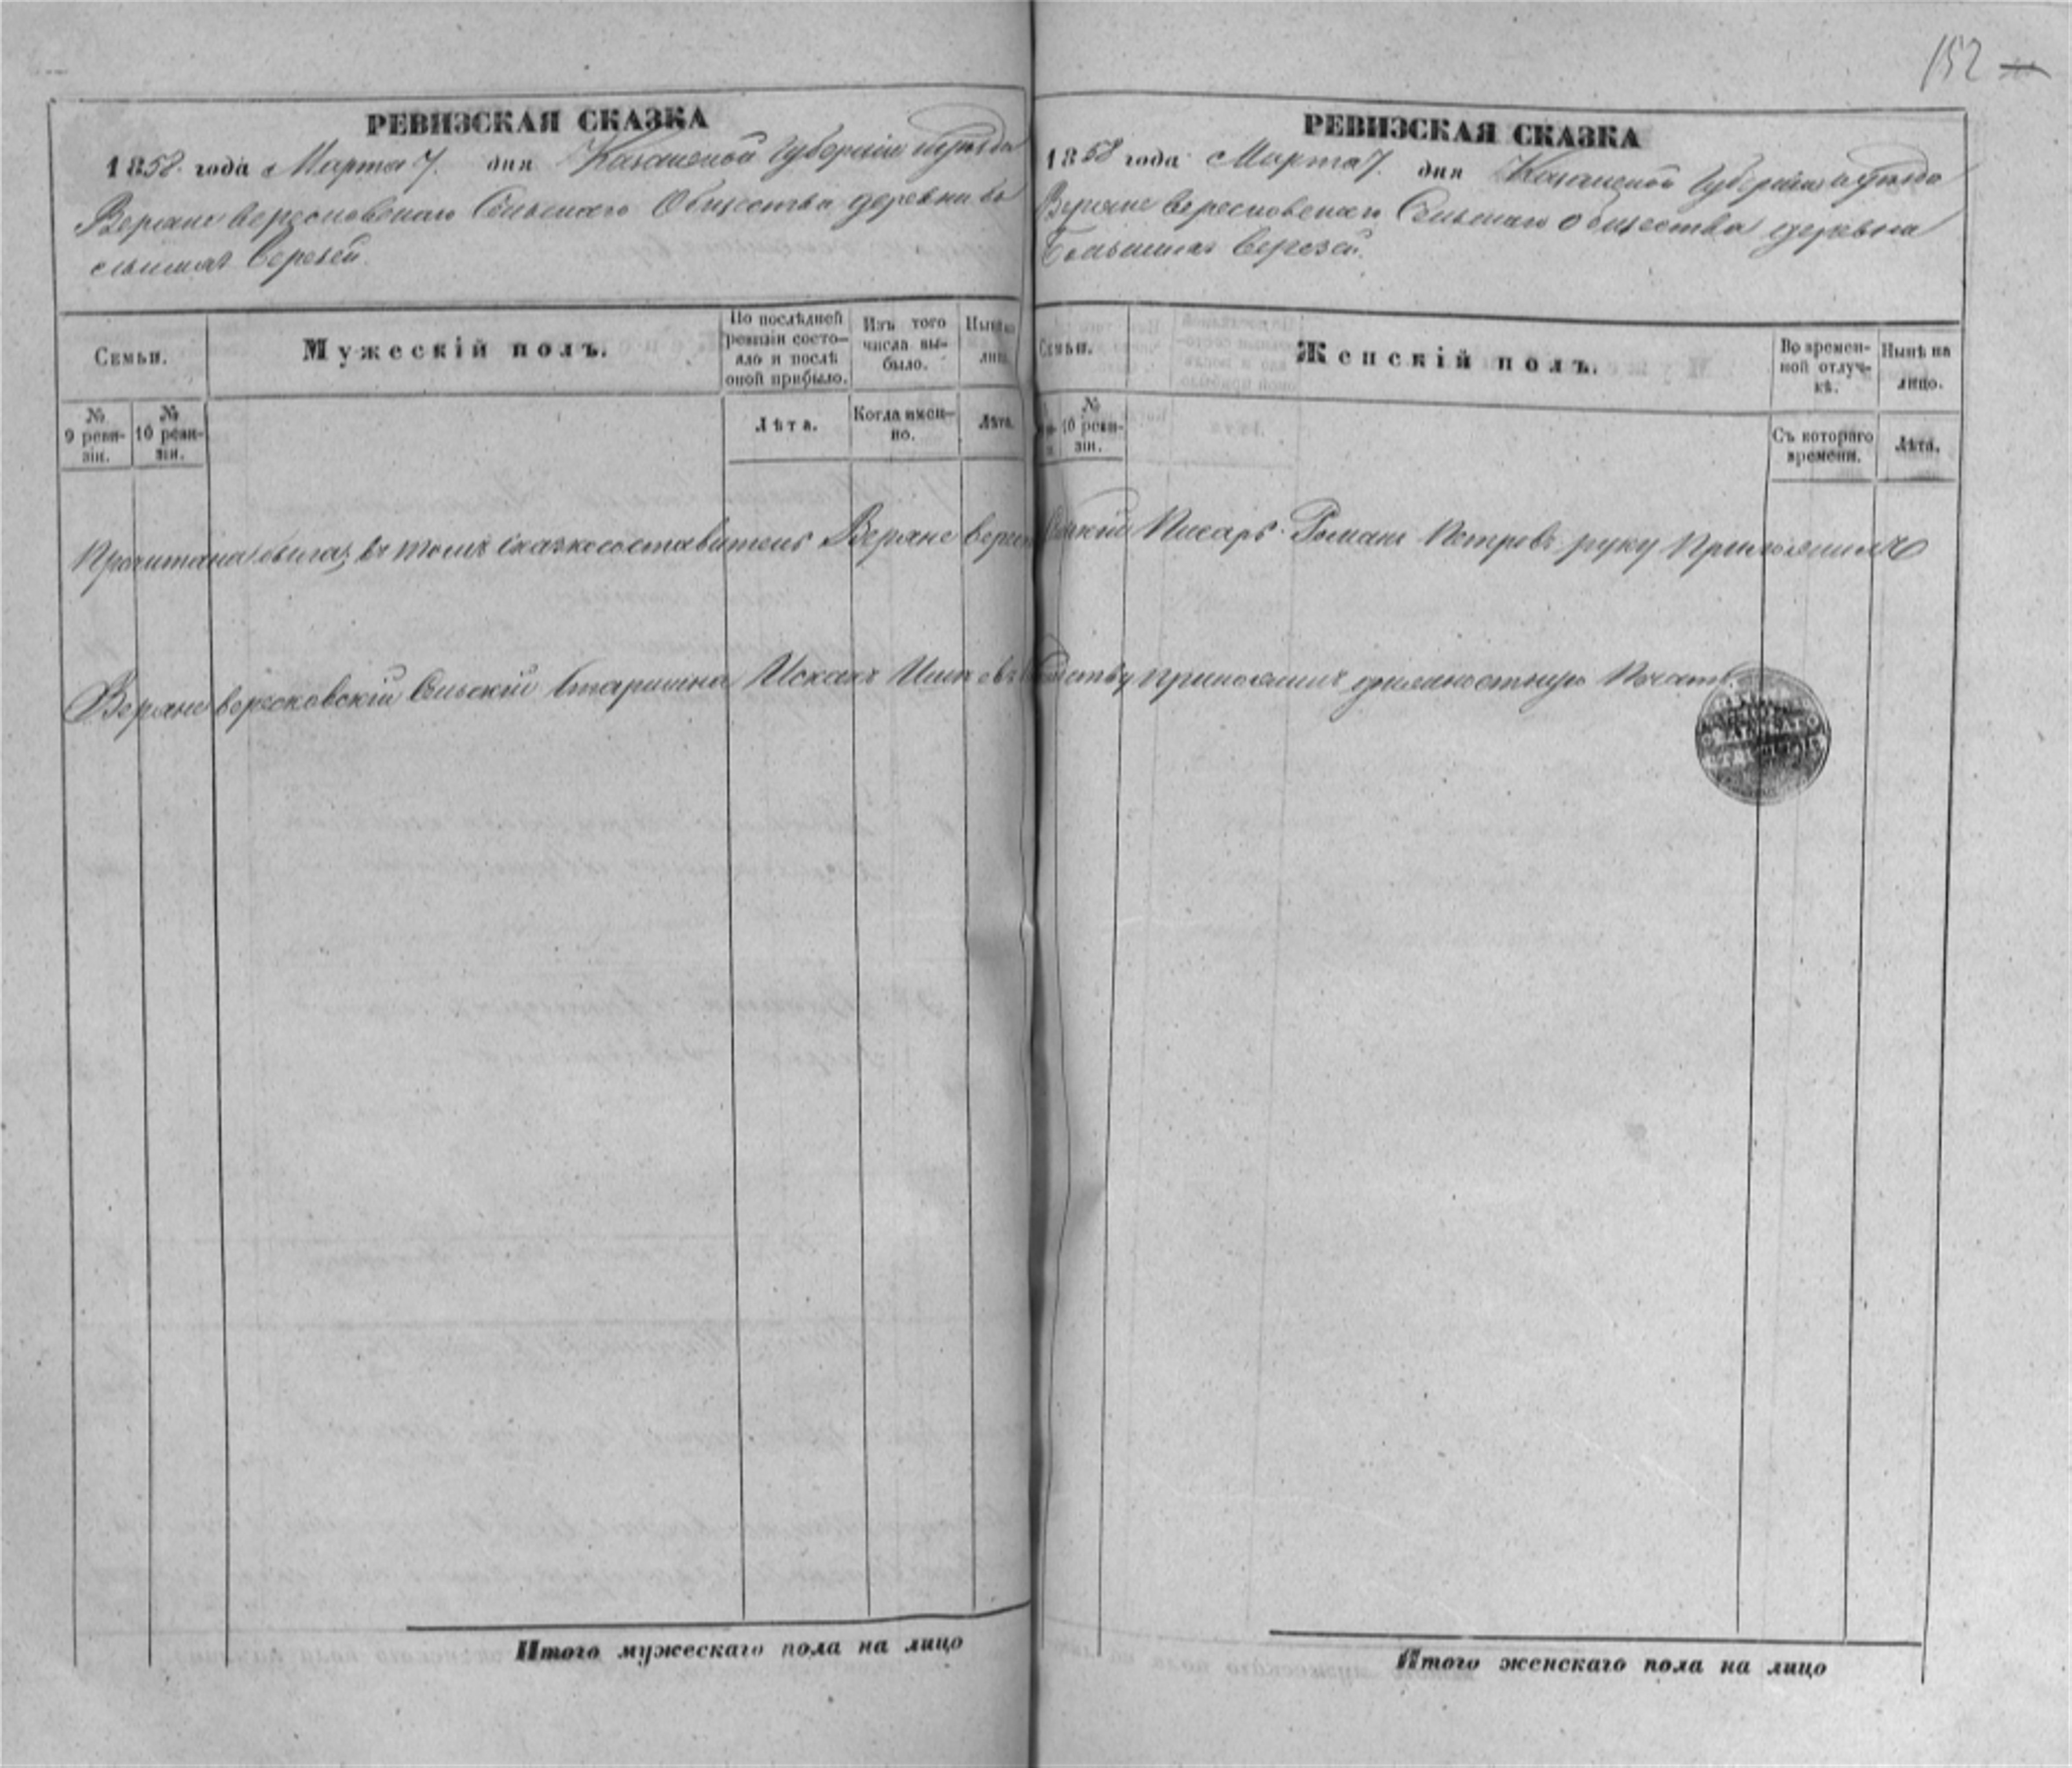 152
РЕВИЗСКАЯ СКАЗКА
1858 года Марта 7. дня Казанской Губернiи и уѣзда
Верхне Вересковскаго Сельскаго Общества деревни Бо
льших Березей.
Семьи.
Мужескiй полъ.
По послѣдней ревизiи состояло и послѣ оной прибыло.
Изъ того числа выбыло.
Нынѣ на лицо.
№ 9 ревизiи.
№ 10 ревизiи.
Лѣта.
Когда именно.
Лѣта.
РЕВИЗСКАЯ СКАЗКА
1858 года Марта 7. дня Казанской Губернiи и уѣзда
Верхне Вересковскаго Сельскаго Общества деревни
Большихъ Березей.
Семьи.
Женскiй полъ.
Во временной отлучкѣ.
Нынѣ на лицо.
№ 10 ревизiи.
Съ котораго времени.
Лѣта.
Прочитана была, въ томъ сказкосоставитель Верхне Сельскiй Писарь Романъ Петровъ руку приложилъ
Верхне Вересковскiй Сельскiй Старшина Исхакъ приложилъ должностную Печать
Итого мужескаго пола на лицо
Итого женскаго пола на лицо